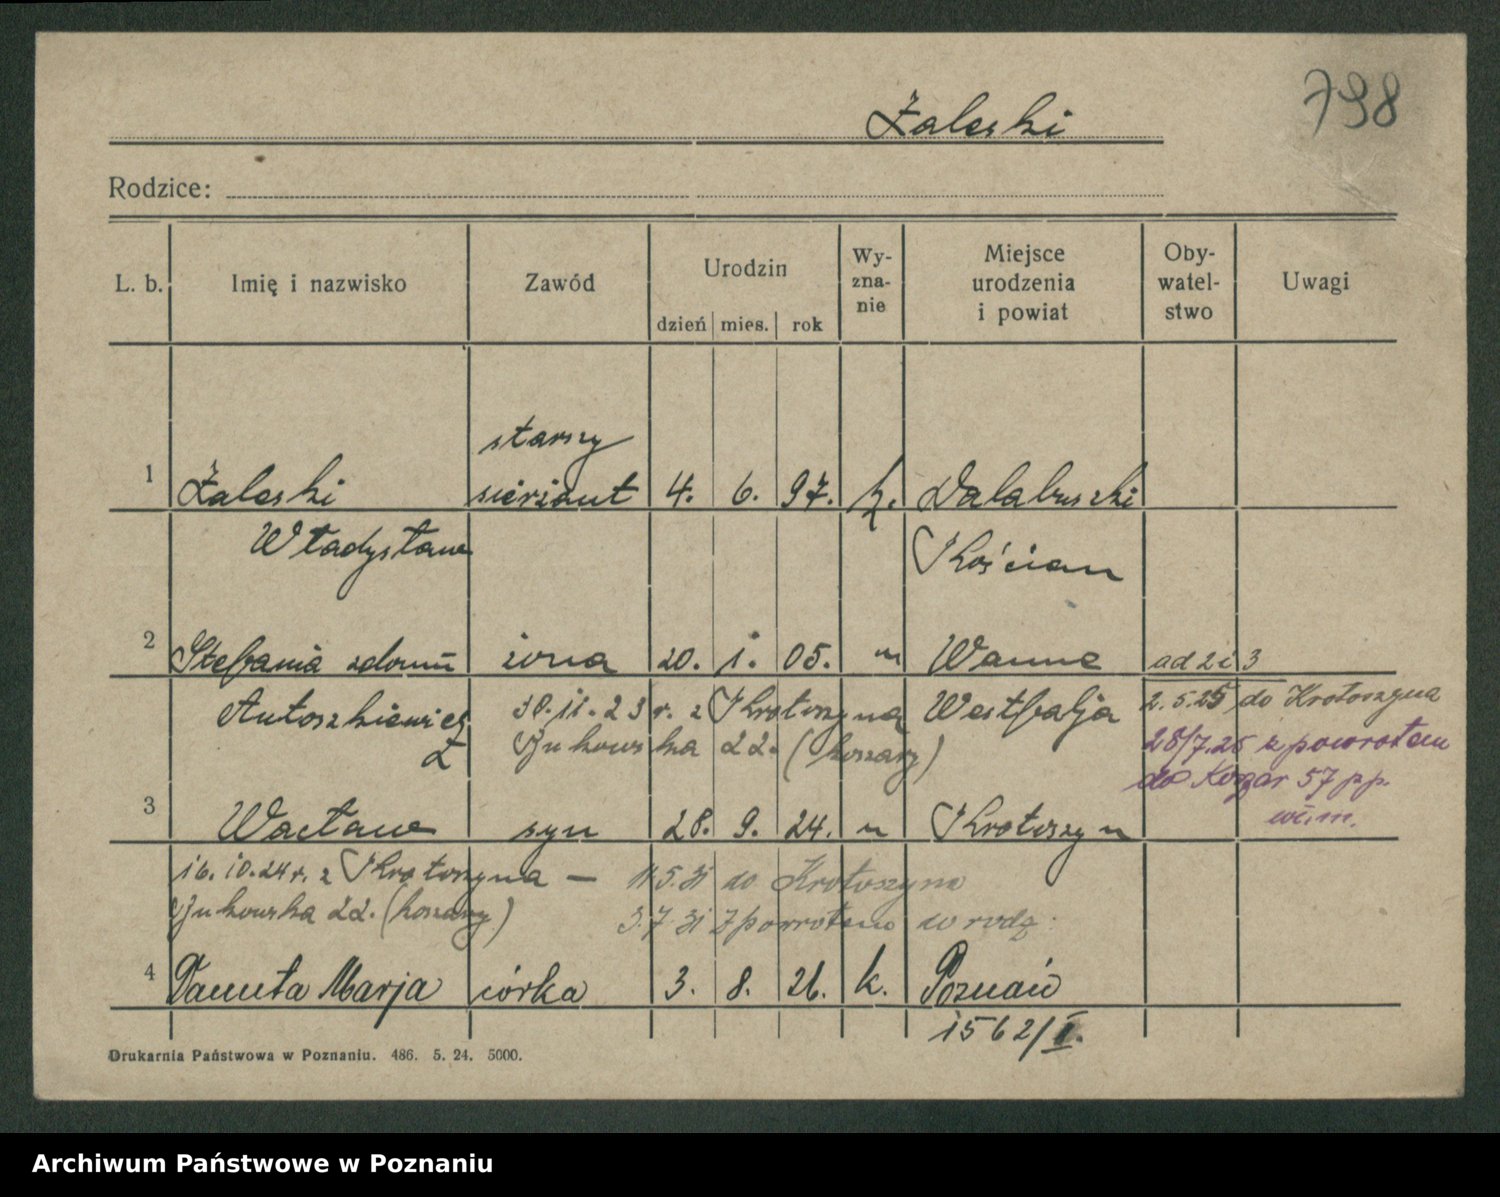 798
Żaleski
Rodzice:
L. b. Imię i nazwisko Zawód Urodzin dzień mies. rok Wy-zna-nie Miejsce urodzenia i powiat Oby-watel-stwo Uwagi
starszy
1 Żaleski sierżant 4. 6. 97. k. Dalabuszki
Władysław Kościan
2 Stefania zdomu żona 20. 1. 05. " Wanne ad 2 i 3
Antoszkiewicz 30.11.23 r. z Krotoszyna Westfalja 2.5.25 do Krotoszyna
Ż Bukowska 22. (koszary) 28/7.25 z powrotem
do Koszar 57 pp.
3 Wacław syn 28. 9. 24. " Krotoszyn
16.10.24 r. z Krotoszyna — 11.5.31 do Krotoszyna
Bukowska 22. (koszary) 3.7.31 z powrotem do rodz.
4 Danuta Marja córka 3. 8. 26. k. Poznań
1562/I.
Drukarnia Państwowa w Poznaniu. 486. 5. 24. 5000.
Archiwum Państwowe w Poznaniu